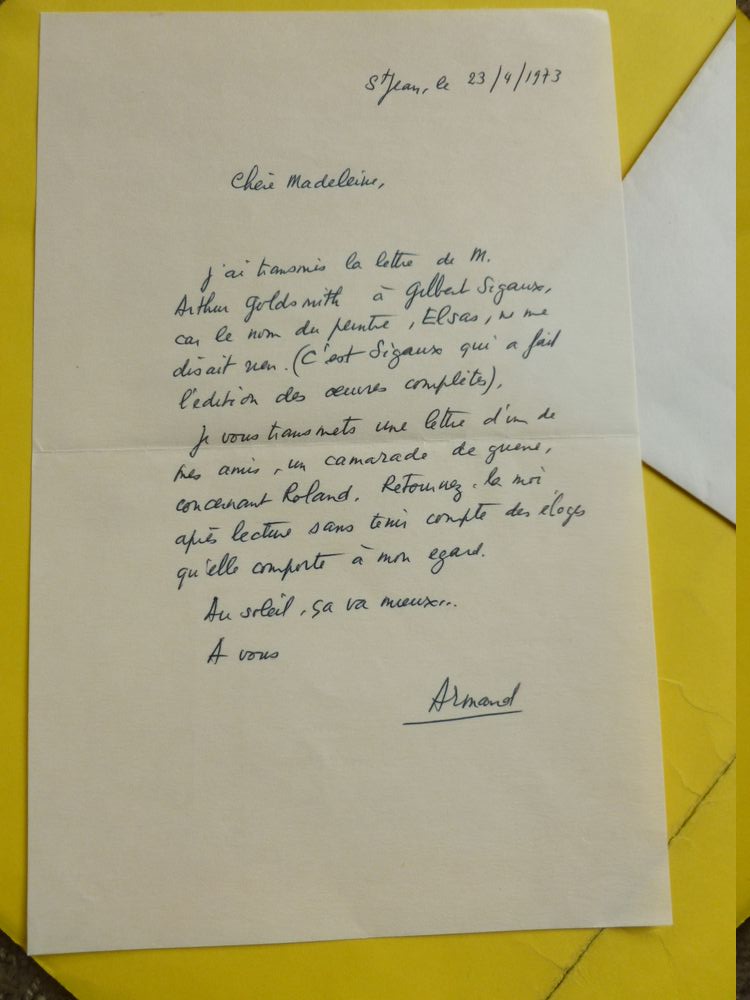 St Jean, le 23/4/1973
Chère Madeleine,
j'ai transmis la lettre de M.
Arthur Goldsmith à Gilbert Sigaux,
car le nom du peintre, Elsas, ne me
disait rien. (C'est Sigaux qui a fait
l'édition des œuvres complètes).
Je vous transmets une lettre d'un de
mes amis, un camarade de guerre,
concernant Roland. Retournez-la moi
après lecture sans tenir compte des éloges
qu'elle comporte à mon egard.
Au soleil, ça va mieux...
A vous
Armand